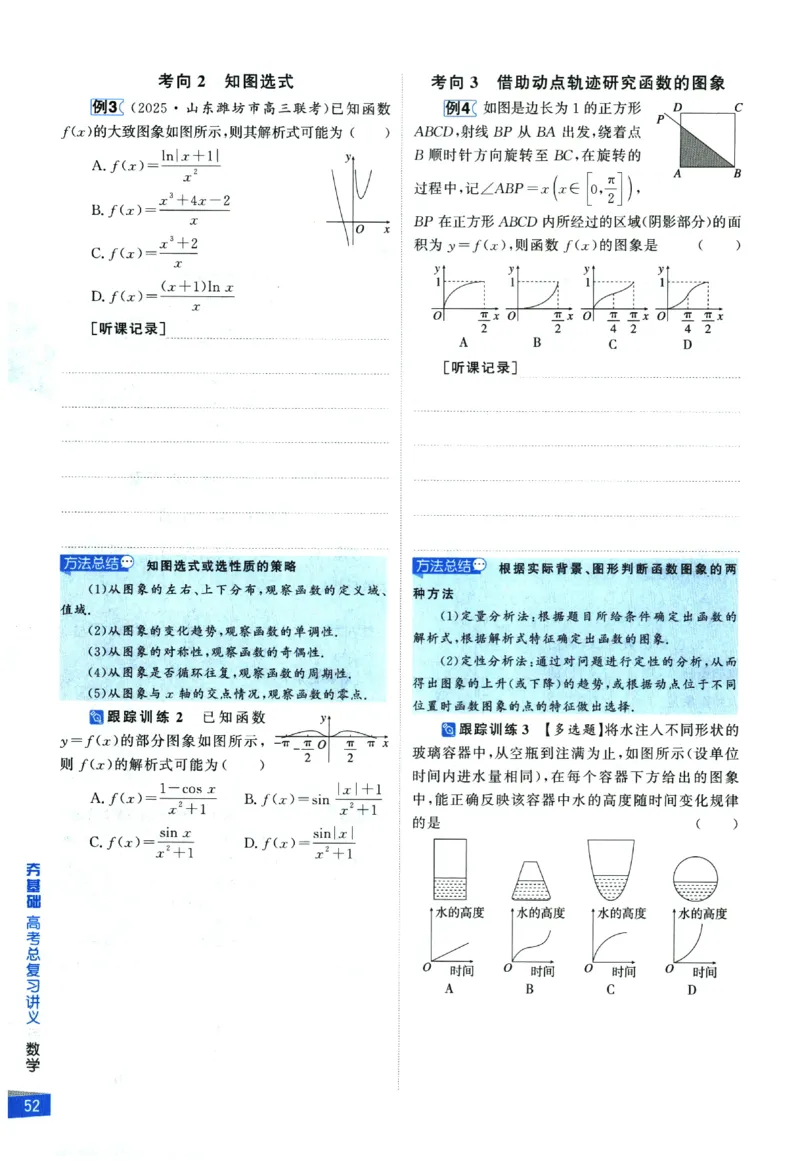 考向 2 知图选式
例3 (2025·山东潍坊市高三联考)已知函数
f(x)的大致图象如图所示,则其解析式可能为 ( )
A. f(x)=ln|x+1|/x²
B. f(x)=(x³+4x-2)/x
C. f(x)=(x³+2)/x
D. f(x)=(x+1)ln x/x
y
O x
[听课记录]
方法总结 知图选式或选性质的策略
(1)从图象的左右、上下分布,观察函数的定义域、
值域.
(2)从图象的变化趋势,观察函数的单调性.
(3)从图象的对称性,观察函数的奇偶性.
(4)从图象是否循环往复,观察函数的周期性.
(5)从图象与 x 轴的交点情况,观察函数的零点.
跟踪训练 2 已知函数
y=f(x)的部分图象如图所示,
则 f(x)的解析式可能为( )
y
-π -π/2 O π/2 π x
A. f(x)=(1-cos x)/(x²+1) B. f(x)=sin (|x|+1)/(x²+1)
C. f(x)=sin x/(x²+1) D. f(x)=sin|x|/(x²+1)
考向 3 借助动点轨迹研究函数的图象
例4 如图是边长为 1 的正方形
ABCD,射线 BP 从 BA 出发,绕着点
B 顺时针方向旋转至 BC,在旋转的
过程中,记∠ABP=x(x∈[0,π/2]),
BP 在正方形 ABCD 内所经过的区域(阴影部分)的面
积为 y=f(x),则函数 f(x)的图象是 ( )
D C
P
A B
y y y y
1 1 1 1
O π/2 x O π/2 x O π/4 π/2 x O π/4 π/2 x
A B C D
[听课记录]
方法总结 根据实际背景、图形判断函数图象的两
种方法
(1)定量分析法:根据题目所给条件确定出函数的
解析式,根据解析式特征确定出函数的图象.
(2)定性分析法:通过对问题进行定性的分析,从而
得出图象的上升(或下降)的趋势,或根据动点位于不同
位置时函数图象的点的特征做出选择.
跟踪训练 3 【多选题】将水注入不同形状的
玻璃容器中,从空瓶到注满为止,如图所示(设单位
时间内进水量相同),在每个容器下方给出的图象
中,能正确反映该容器中水的高度随时间变化规律
的是 ( )
水的高度 水的高度 水的高度 水的高度
O 时间 O 时间 O 时间 O 时间
A B C D
夯基础 高考总复习讲义 数学
52